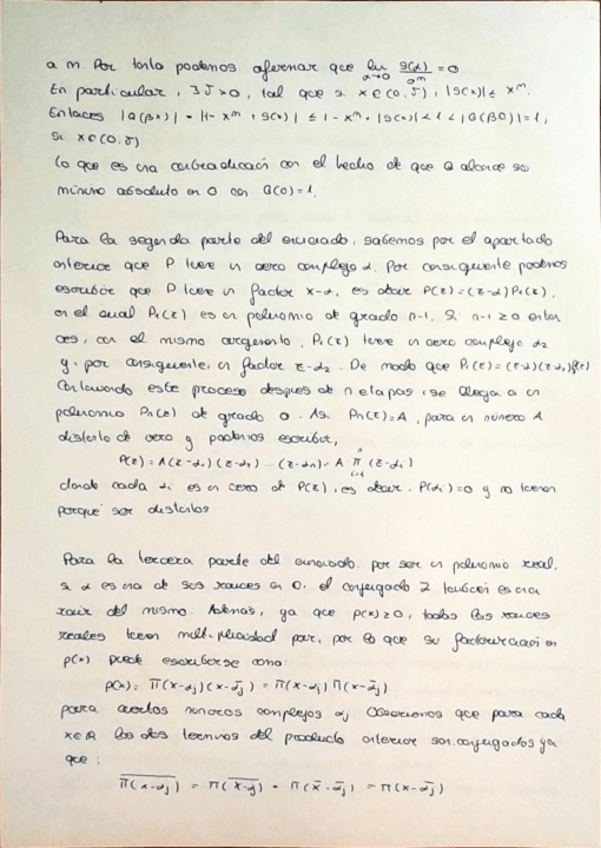 a m. Por tanto podemos afirmar que lim x→0 g(x)/x^m = 0
En particular, ∃ δ>0, tal que si x∈(0,δ), |g(x)| < x^m.
Entonces |Q(βx)| = |1-x^m + g(x)| ≤ 1-x^m + |g(x)| < 1 = |Q(β0)| = 1,
si x∈(0,δ)
lo que es una contradicción con el hecho de que Q alcance su
mínimo absoluto en 0 con Q(0)=1.
Para la segunda parte del enunciado, sabemos por el apartado
anterior que P tiene un cero complejo α. Por consiguiente podemos
escribir que P tiene un factor x-α, es decir P(z)=(z-α)P₁(z),
en el cual P₁(z) es un polinomio de grado n-1. Si n-1≥0 enton
ces, con el mismo argumento, P₁(z) tiene un cero complejo α₂
y, por consiguiente, un factor z-α₂. De modo que P₁(z)=(z-α)(z-α₂)P₂(z)
Continuando este proceso después de n etapas, se llega a un
polinomio Pn(z) de grado 0. Así Pn(z)=A, para un número A
distinto de cero y podemos escribir,
P(z)=A(z-α₁)(z-α₂)...(z-αn)= A ∏ i=1 n (z-αi)
donde cada αi es un cero de P(z), es decir, P(αi)=0 y no tienen
porqué ser distintos
Para la tercera parte del enunciado, por ser un polinomio real,
si α es una de sus raíces en ℂ, el conjugado ᾱ también es una
raíz del mismo. Además, ya que p(x)≥0, todas las raíces
reales tienen multiplicidad par, por lo que su factorización en
p(x) puede escribirse como:
p(x)= ∏(x-αj)(x-ᾱj) = ∏(x-αj) ∏(x-ᾱj)
para ciertos números complejos αj. Observemos que para cada
x∈ℝ los dos términos del producto anterior son conjugados ya
que: